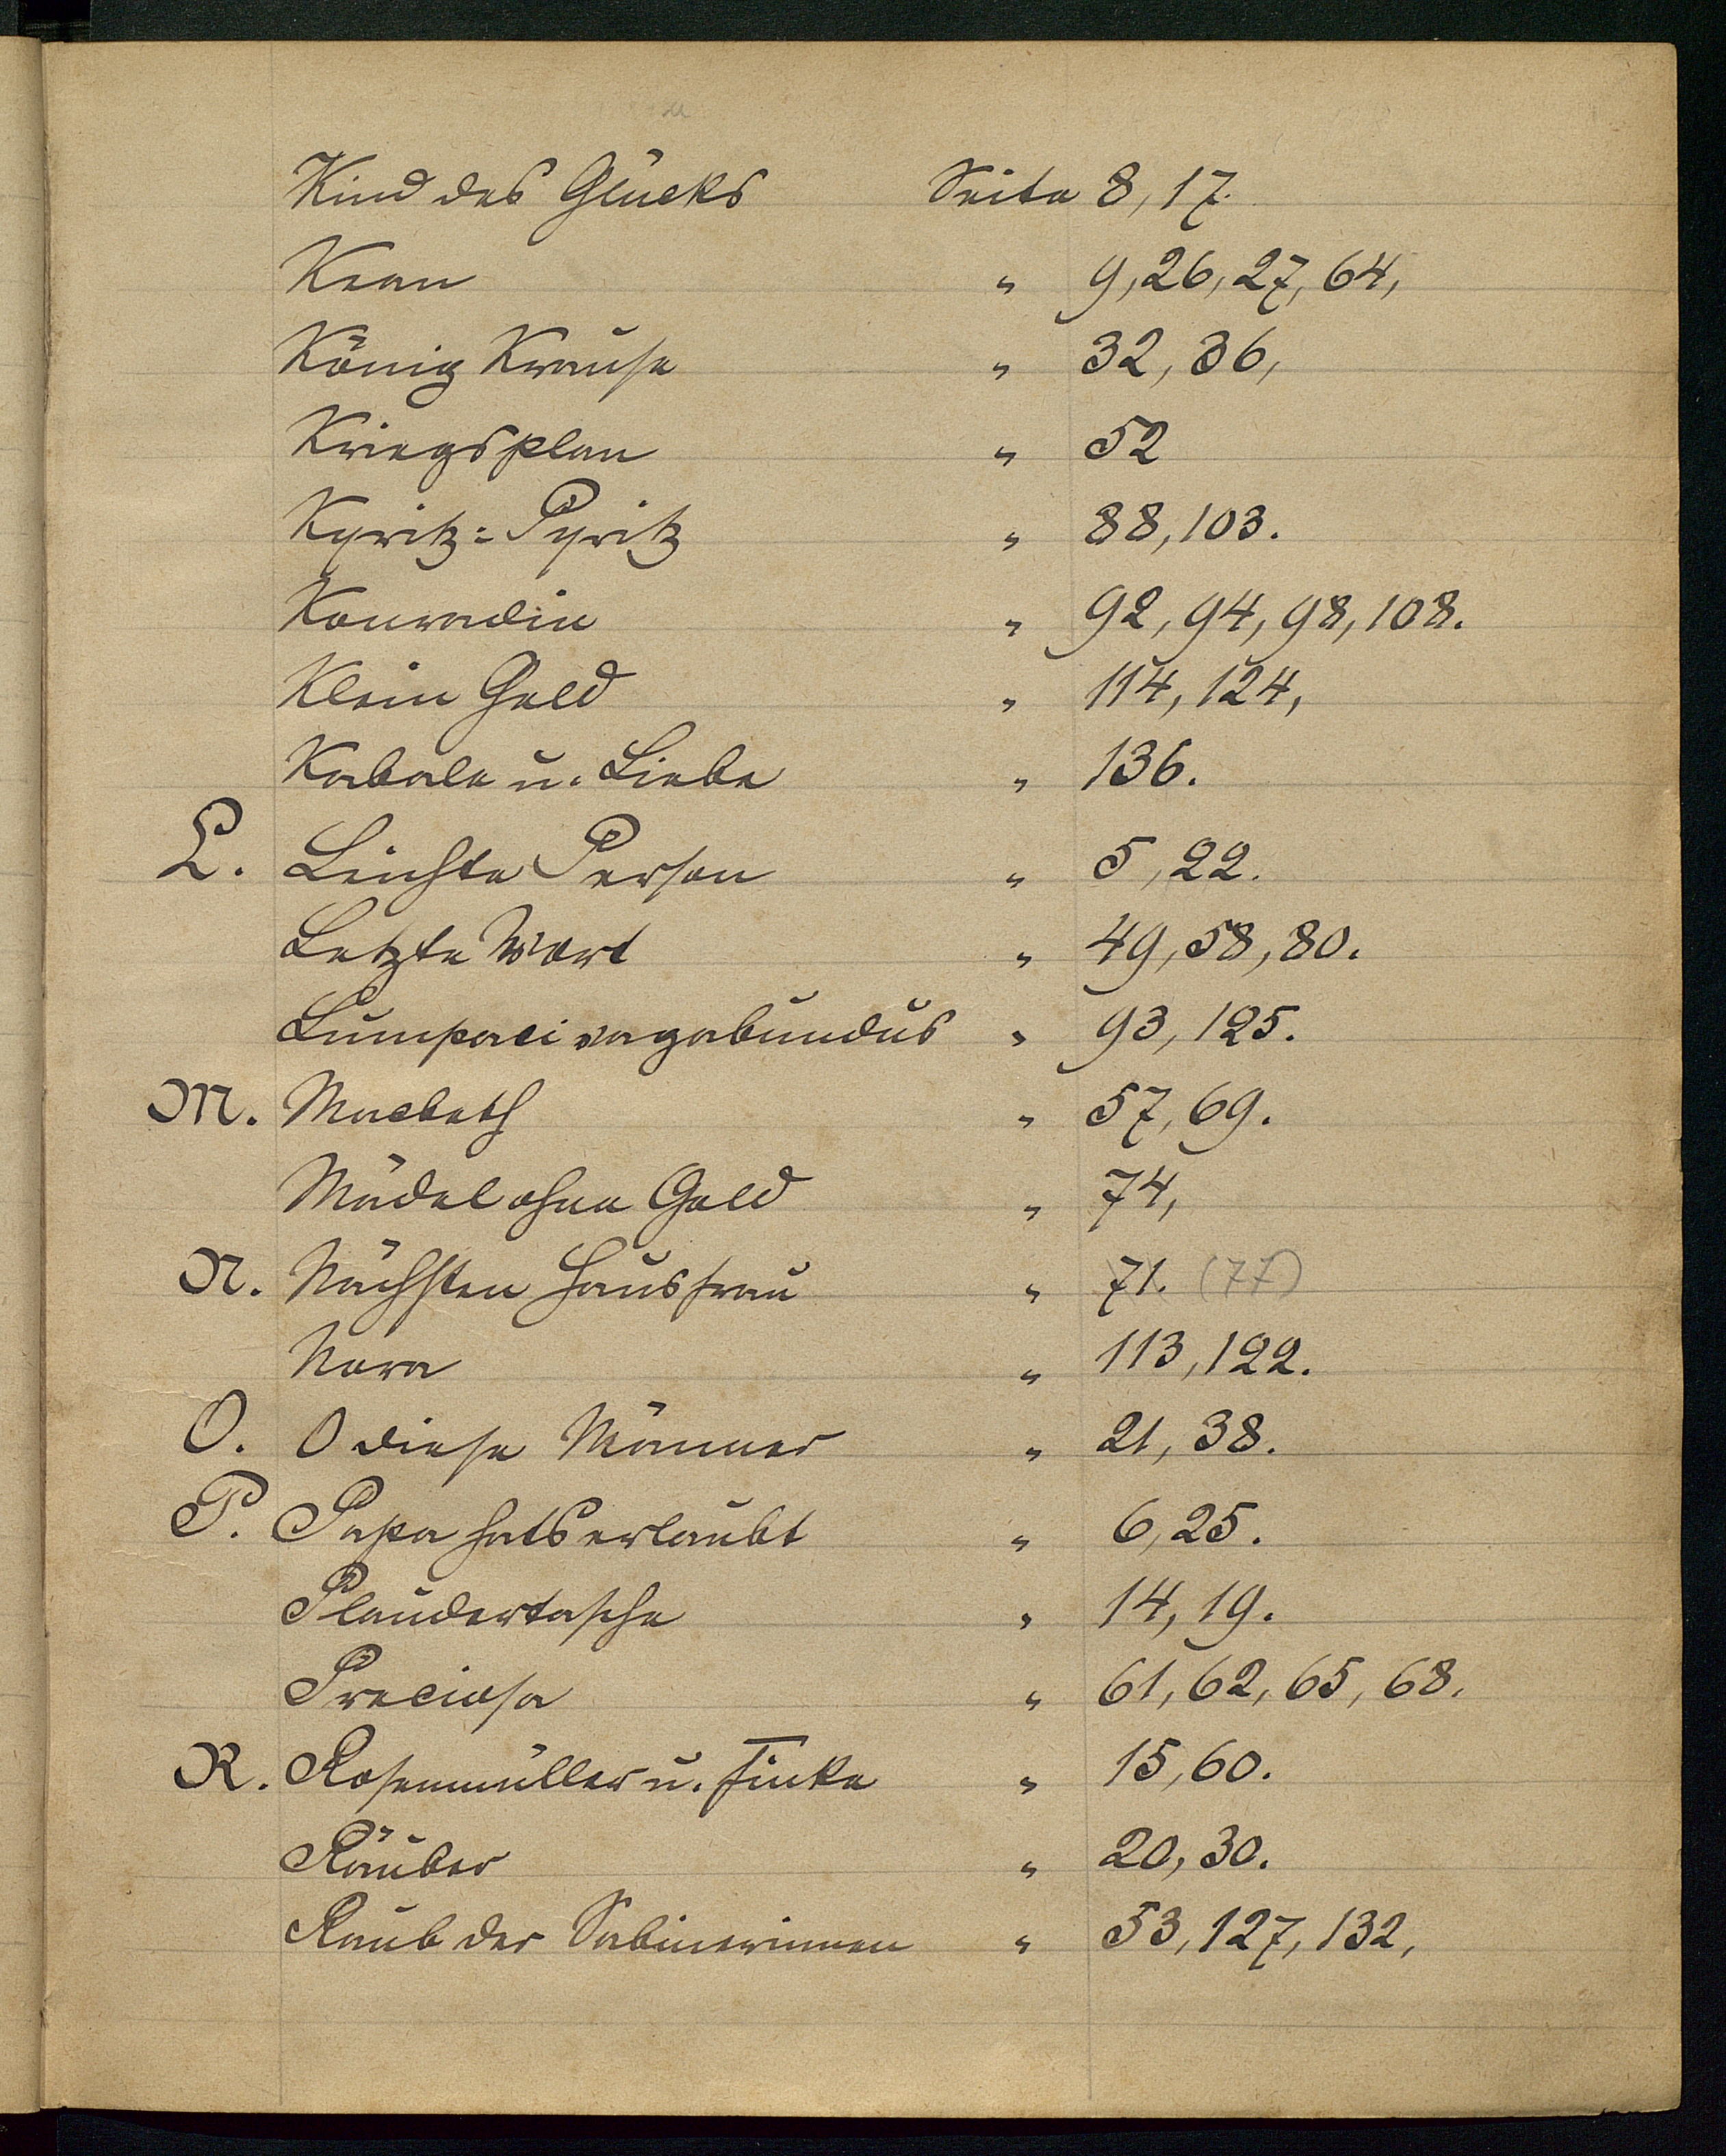 Kind des Glücks Seite 8, 17.
Kean " 9, 26, 27, 64,
König Krause " 32, 36,
Kriegsplan " 52
Kyritz=Pyritz " 88, 103.
Konradin " 92, 94, 98, 108.
Klein Geld " 114, 124,
Kabale u. Liebe " 136.
L. Leichte Person " 5, 22.
Letzte Wort " 49, 58, 80.
Lumpaci vagabundus " 93, 125.
M. Macbeth " 57, 69.
Mädel ohne Geld " 74,
N. Nächsten Hausfrau " 71. (77)
Nora " 113, 122.
O. O diese Männer " 21, 38.
P. Papa hats erlaubt " 6, 25.
Plaudertasche " 14, 19.
Preciosa " 61, 62, 65, 68.
R. Rosenmüller u. Finke " 15, 60.
Räuber " 20, 30.
Raub der Sabinerinnen " 53, 127, 132,